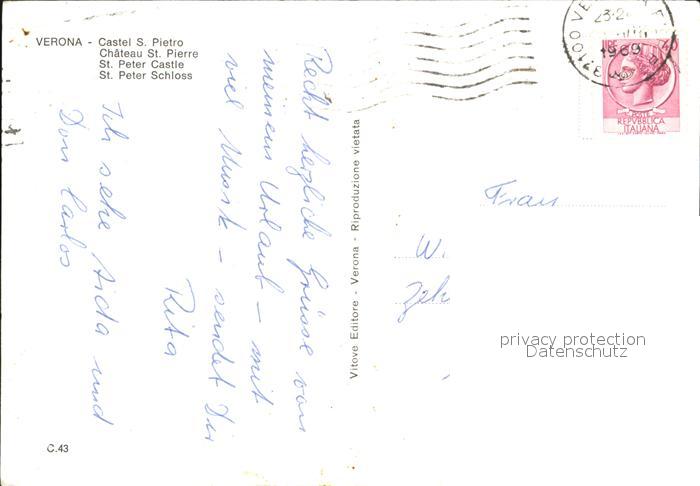 VERONA - Castel S. Pietro
Château St. Pierre
St. Peter Castle
St. Peter Schloss
Recht herzliche Grüsse von
meinem Urlaub - mit
viel Musik - sendet Dir
Rita
Ich sehe Aida und
Don Carlos
Vitove Editore - Verona - Riproduzione vietata
1969
37100 VE
LIRE 40
POSTE
REPVBBLICA
ITALIANA
Frau
W.
Zeh
privacy protection
Datenschutz
C.43